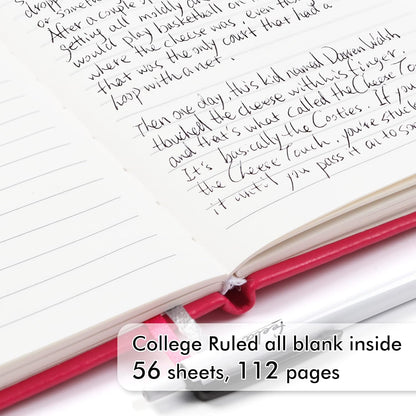 dropp
or somet
After a couple
getting all moldy a
would play basketball on
where the cheese was. even th
that was the only court that had a
loop with a net.
Then one day, this kid named Darren Walsh
touched the cheese with his finger.
and that's what called the Cheese Touc
It's basically the Cooties. If you
the Cheese Touch. you're stuck
it until you pass it on to so
College Ruled all blank inside
56 sheets, 112 pages